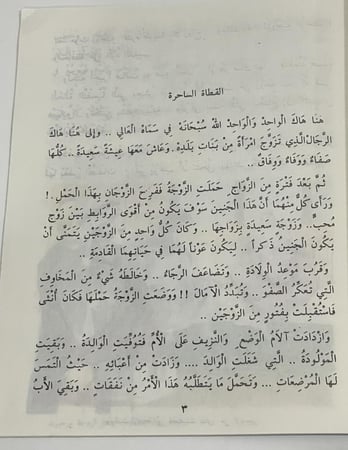 القطاة الساحرة
هُنَا هَاكَ الْواحِدْ وَالْوَاحِدُ اللهُ سُبْحَانَهُ فِي سَمَاهُ الْعَالِي .. وَإِلى هُنَا هَاكَ
الرجَّالْ الَّذِي تَزَوَّجَ امْرَأَةً مِنْ بَنَاتِ بَلَدِهِ. وَعَاشَ مَعَهَا عِيشَةً سَعِيدَةً .. كُلُّهَا
صَفَاءٌ وَوَفَاءٌ وَوِفَاقٌ ..
ثُمَّ بَعْدَ فَتْرَةٍ مِنَ الزَّوَاجِ حَمَلَتِ الزَّوْجَةُ فَفَرِحَ الزَّوْجَانِ بِهَذَا الْحَمْلِ .!
وَرَأَى كُلٌّ مِنْهُمَا أَنَّ هَذَا الْجَنِينَ سَوْفَ يَكُونُ مِنْ أَقْوَى الرَّوَابِطِ بَيْنَ زَوْجٍ
مُحِبٍّ .. وَزَوْجَةٍ سَعِيدَةٍ بِزَوَاجِهَا .. وَكَانَ كُلُّ وَاحِدٍ مِنَ الزَّوْجَيْنِ يَتَمَنَّى أَنْ
يَكُونَ الْجَنِينُ ذَكَراً .. لِيَكُونَ عَوْناً لَهُمَا فِي حَيَاتِهِمَا الْقَادِمَةِ ..
وَقَرُبَ مَوْعِدُ الْوِلَادَةِ .. وَتَضَاعَفَ الرَّجَاءُ .. وَخَالَطَهُ شَيْءٌ مِنَ الْمَخَاوِفِ
الَّتِي تُعَكِّرُ الصَّفْوَ .. وَتُبَدِّدُ الْآمَالَ !! وَوَضَعَتِ الزَّوْجَةُ حَمْلَهَا فَكَانَ أُنْثَى
فَاسْتُقْبِلَتْ بِفُتُورٍ مِنَ الزَّوْجَيْنِ ..
وَازْدَادَتْ آلَامُ الْوَضْعِ وَالنَّزِيفِ عَلَى الْأُمِّ فَتُوُفِّيَتِ الْوَالِدَةُ .. وَبَقِيَتِ
الْمَوْلُودَةُ .. الَّتِي شَغَلَتِ الْوَالِدَ .... وَزَادَتْ مِنْ أَعْبَائِهِ .. حَيْثُ الْتَمَسَ
لَهَا الْمُرْضِعَاتِ ... وَتَحَمَّلَ مَا يَتَطَلَّبُهُ هَذَا الْأَمْرُ مِنْ نَفَقَاتٍ .. وَبَقِيَ الْأَبُ
٣